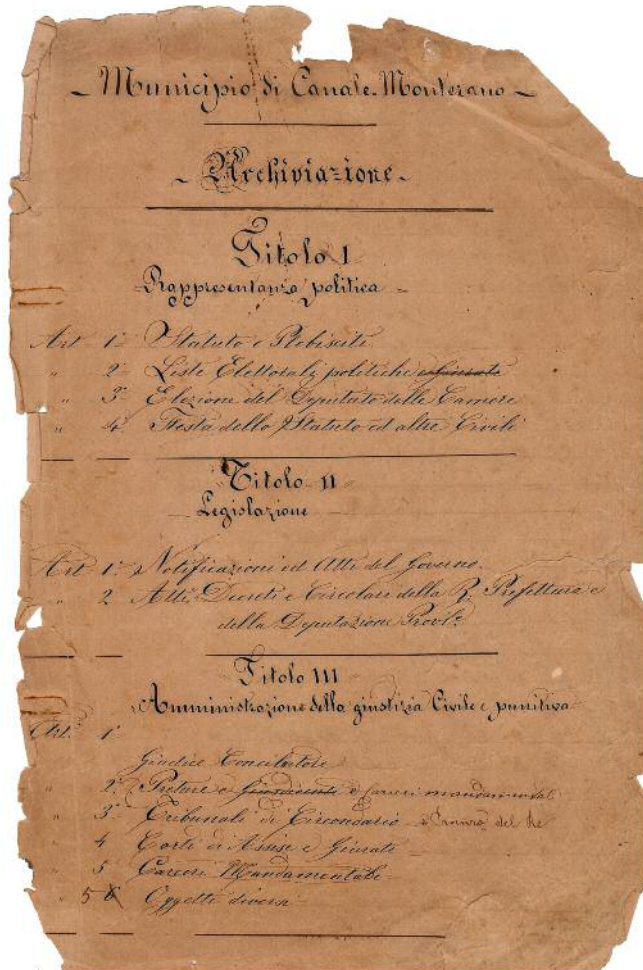 Municipio di Canale Monterano
Archiviazione
Titolo I
Rappresentanza politica
Art 1° Statuto e Plebisciti
" 2° Liste Elettorali politiche e Giurati
" 3° Elezione del Deputato delle Camere
" 4° Festa dello Statuto ed altre Civili
Titolo II
Legislazione
Art 1° Notificazioni ed Atti del Governo.
" 2 Atti, Decreti e Circolari della R. Prefettura e
della Deputazione Provle
Titolo III
Amministrazione della giustizia Civile e punitiva
Art. 1°
Giudice Conciliatore
" 2° Preture e carceri mandamentali
" 3° Tribunali di Circondario del Re
" 4 Corti di Assise e Giurati
" 5 Carceri Mandamentale
" 5 6 Oggetti diversi